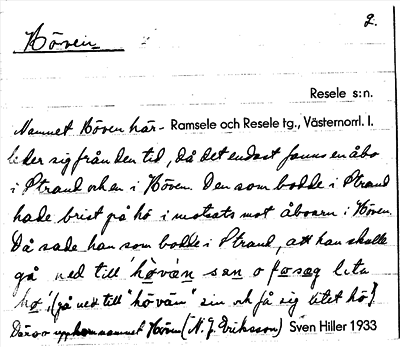 2.
Höven
Resele s:n.
Namnet Höven här- Ramsele och Resele tg., Västernorrl. l.
leder sig från den tid, då det endast fanns en åbo
i Strand och en i Höven. Den som bodde i Strand
hade brist på hö i motsats mot åboarn i Höven.
Då sade han som bodde i Strand, att han skulle
gå ned till hövän sen o få sæg lita
hö (gå ned till "hövän" sin och få sig litet hö)
Därav uppkom namnet Höven (N. J. Eriksson) Sven Hiller 1933